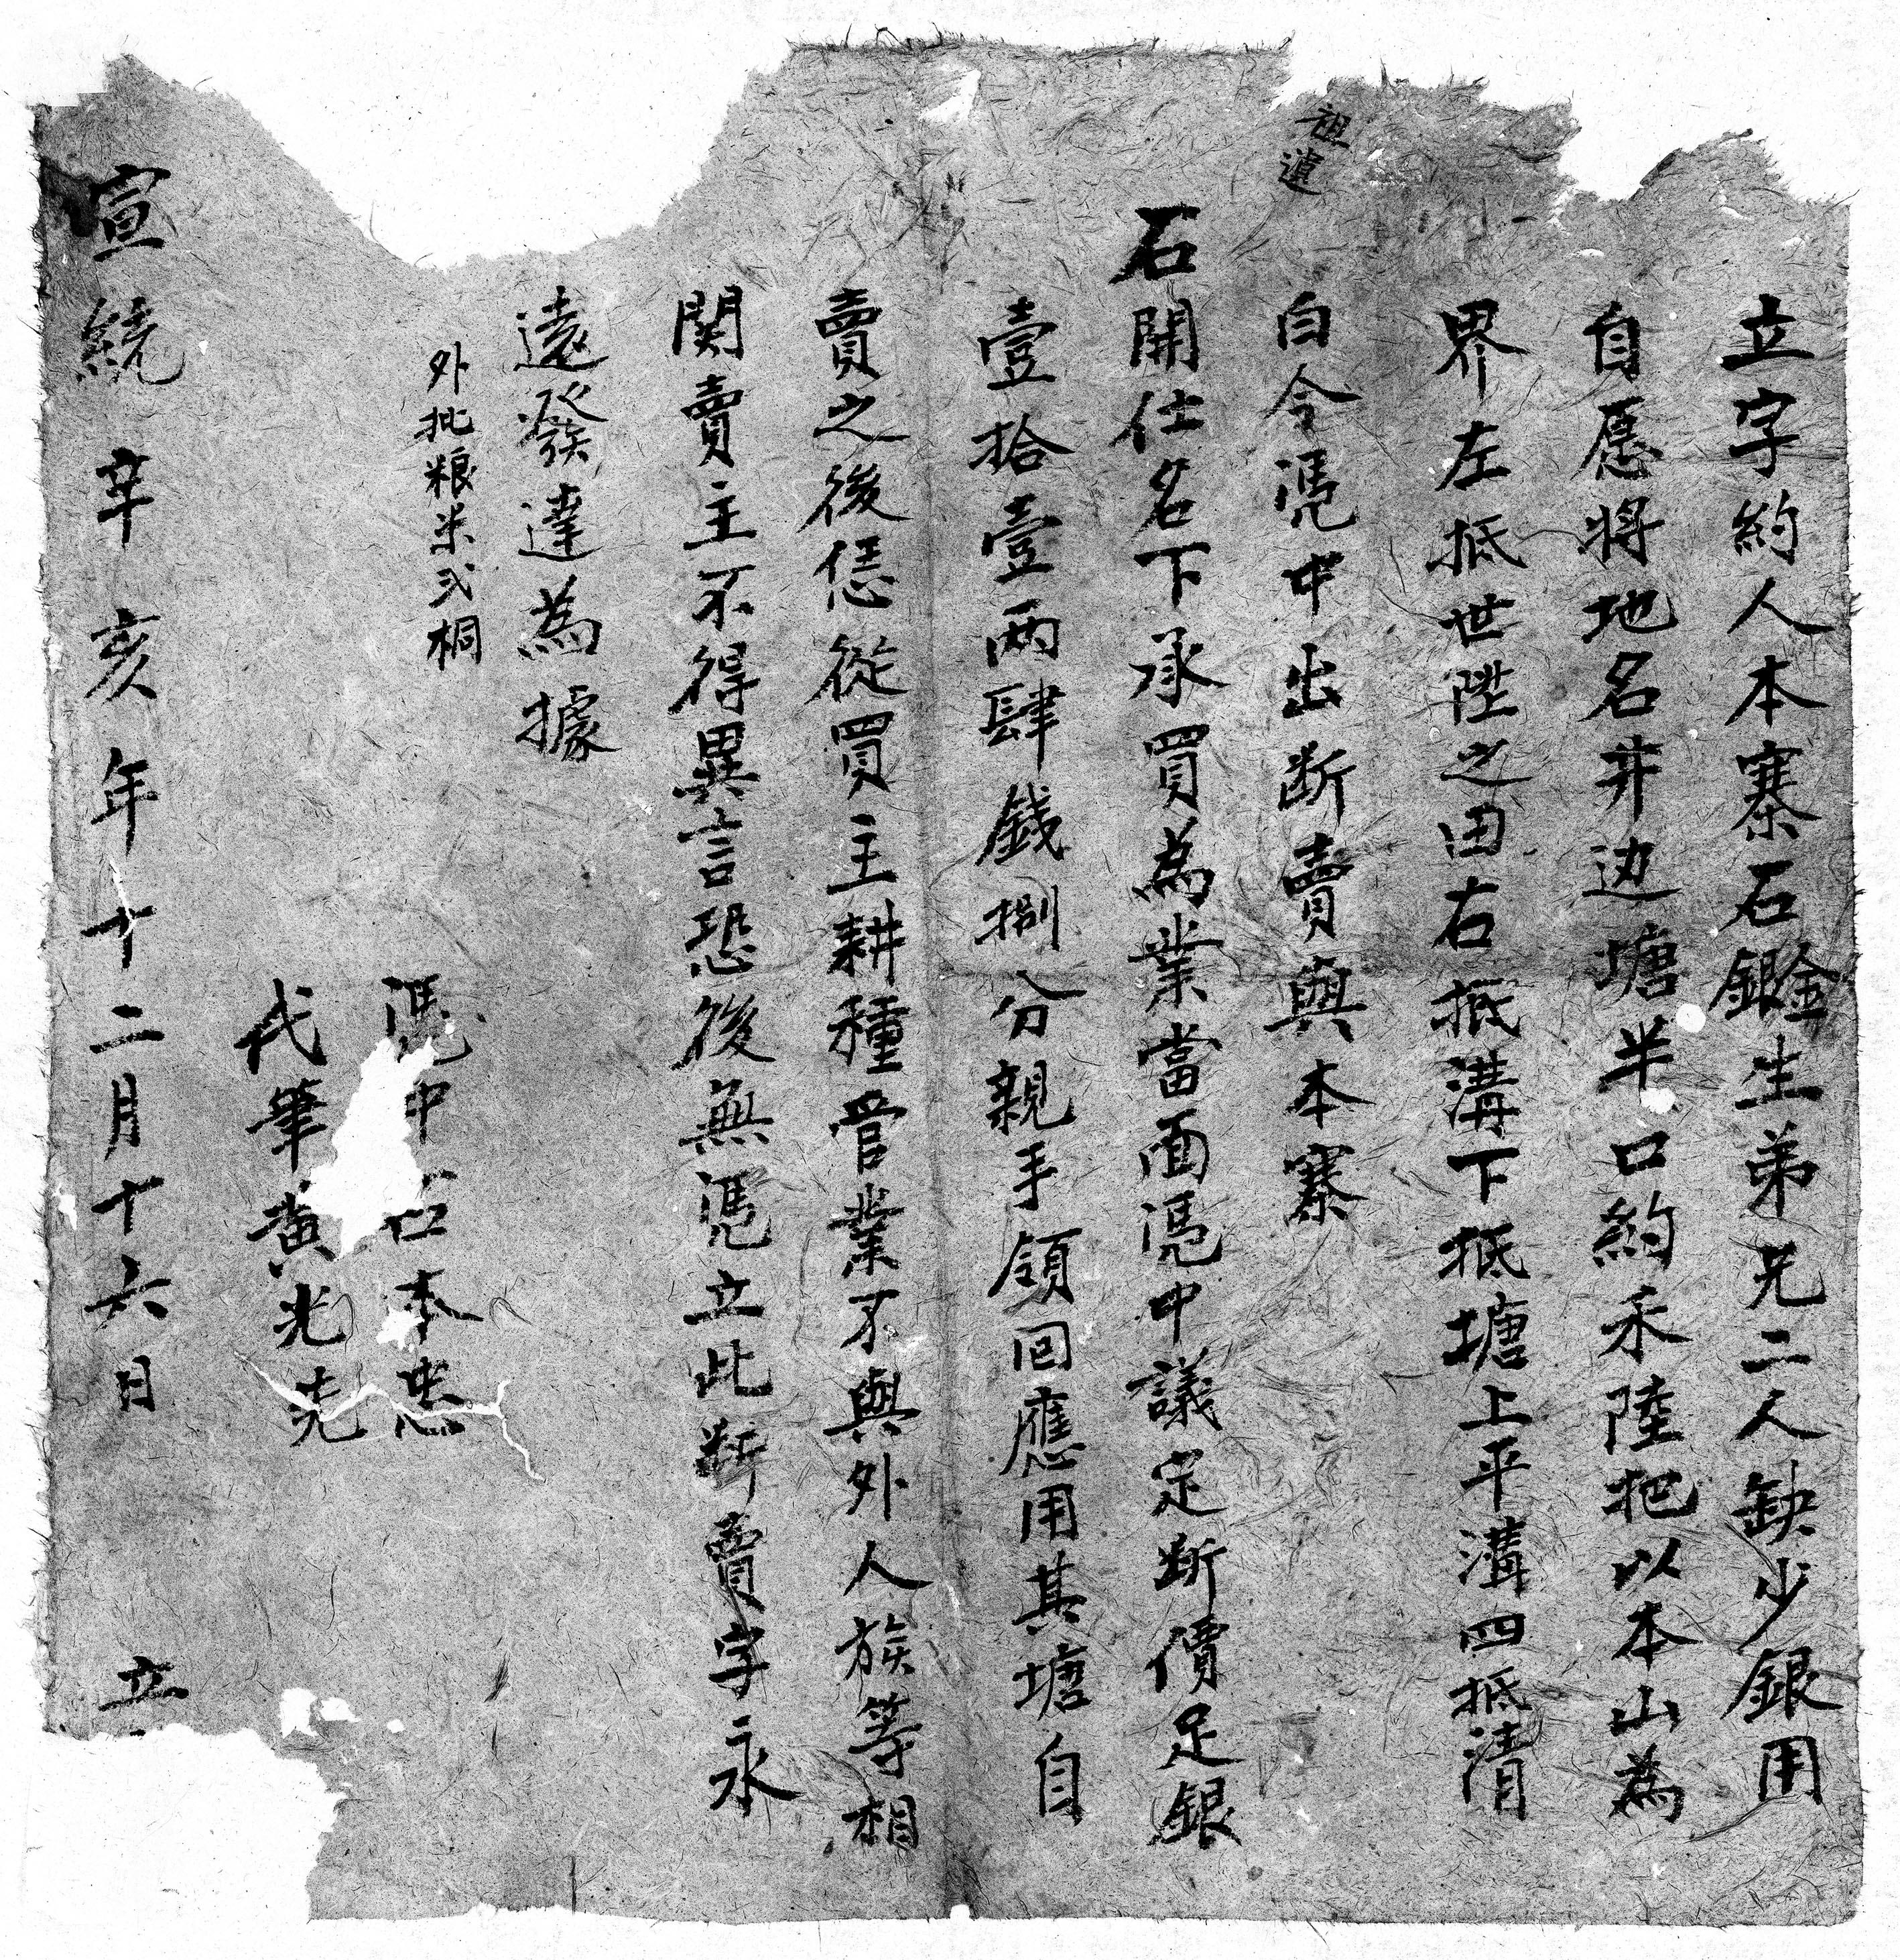 立字約人本寨石鑑生弟兄二人缺少銀用
自愿将地名井边塘半口約禾陸把以本山為
界左抵世陞之田右抵溝下抵塘上平溝四抵清
祖遺
白今凴中出断賣與本寨
石開仕名下承買為業當面凴中議定断價足銀
壹拾壹両肆錢捌分親手領回應用其塘自
賣之後恁從買主耕種管業不與外人族等相
関賣主不得異言恐後無凴立此断賣字永
遠發達為據
外批粮米弍桐
凴中石本忠
代筆黄光先
宣統辛亥年十二月十六日 立